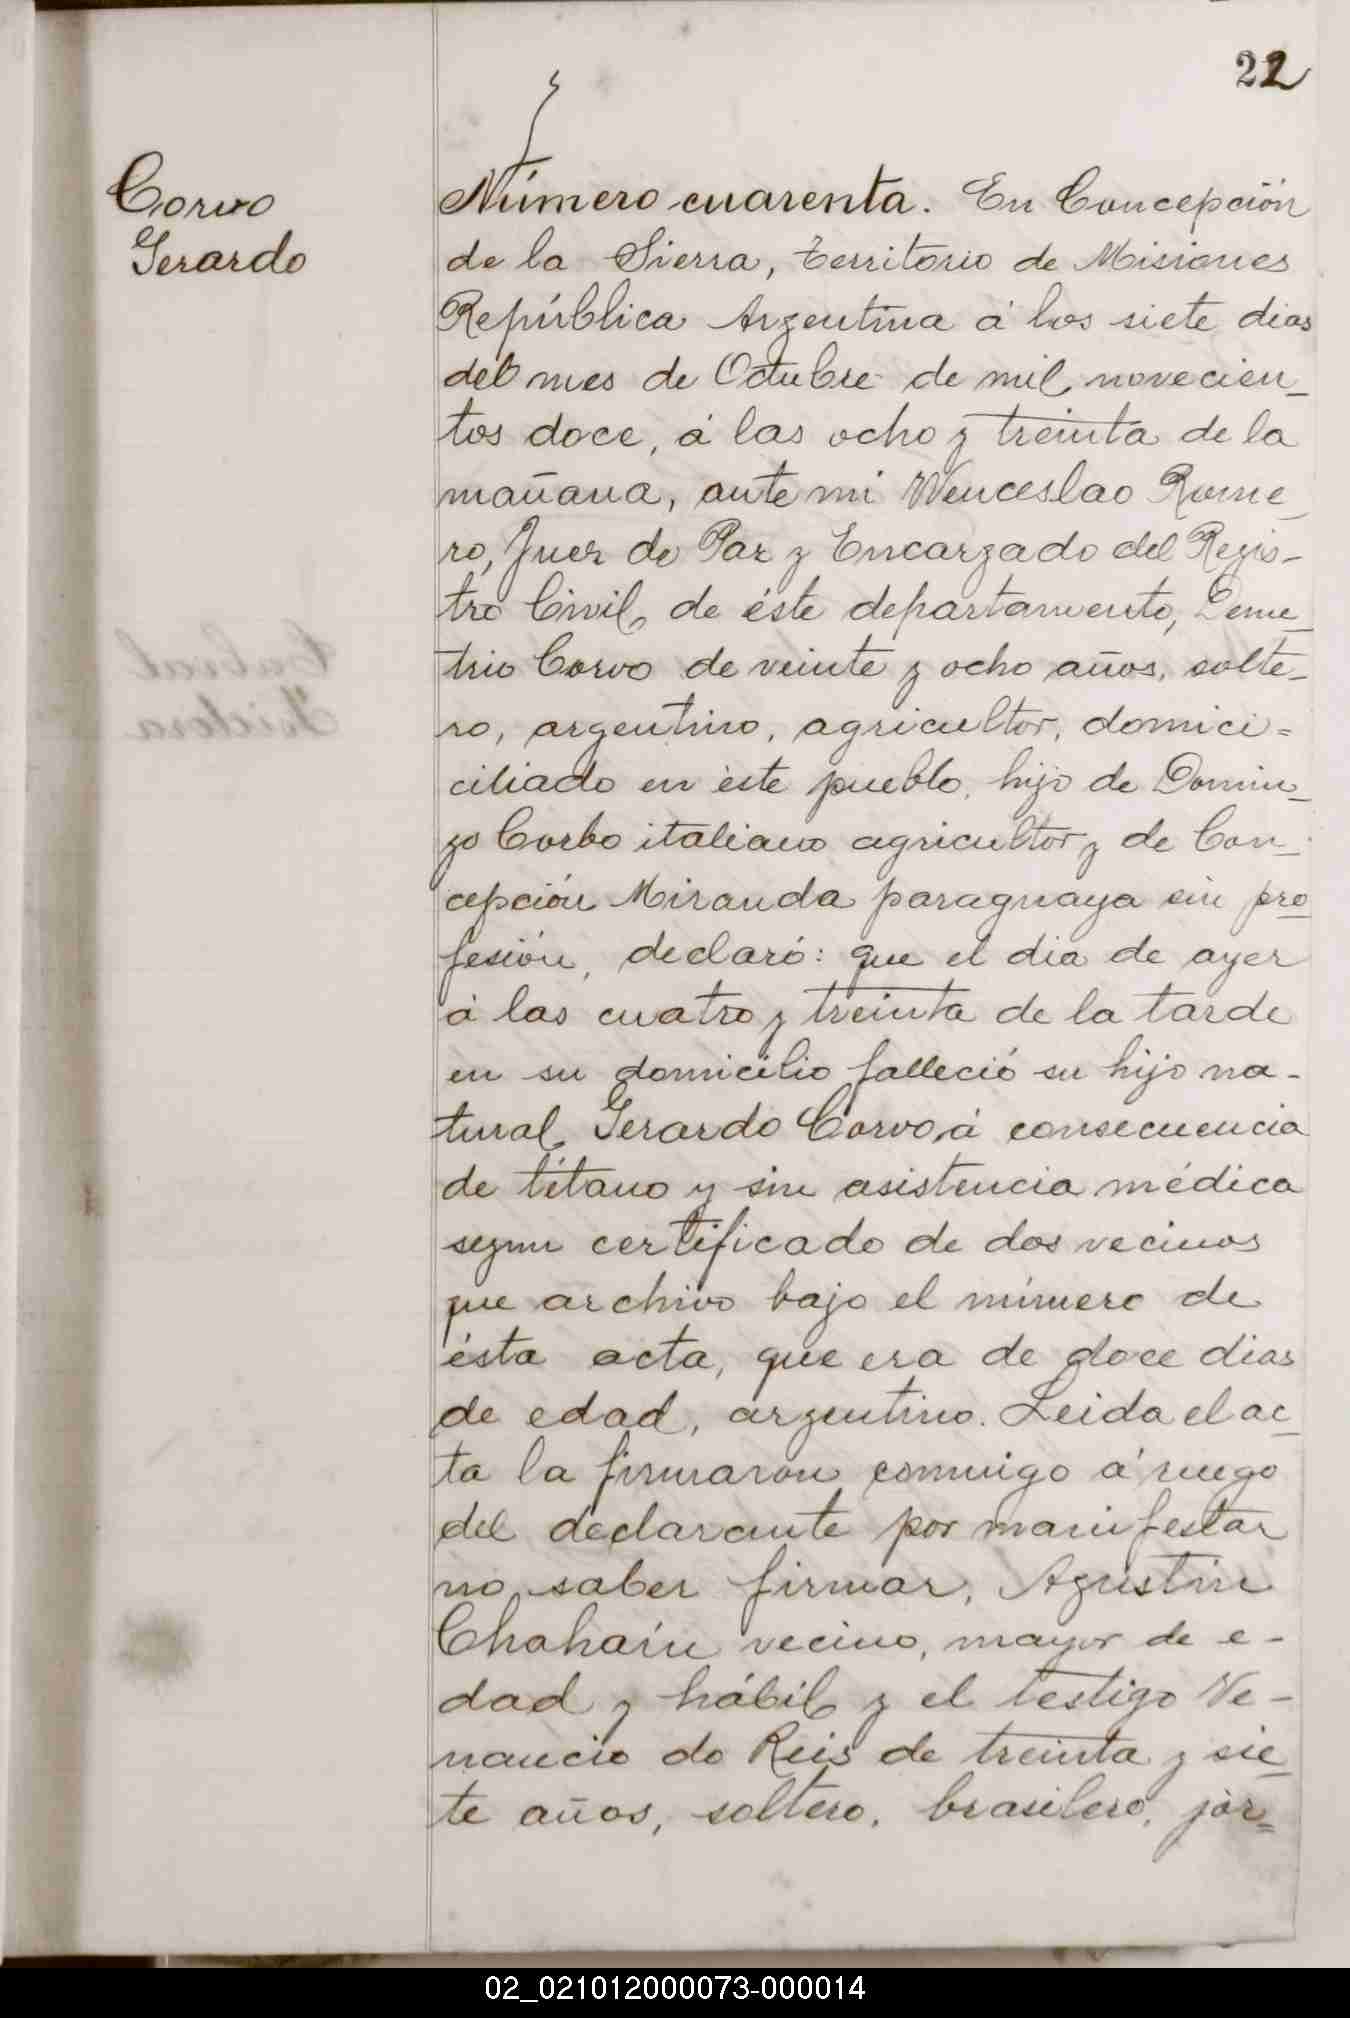 22
Corvo
Gerardo
Número cuarenta. En Concepción
de la Sierra, territorio de Misiones
República Argentina á los siete dias
del mes de Octubre de mil novecien_
tos doce, á las ocho y treinta de la
mañana, ante mi Wenceslao Rome_
ro, Juez de Paz y Encargado del Regis-
tro Civil, de éste departamento, Deme_
trio Corvo de veinte y ocho años, solte_
ro, argentino, agricultor, domici=
ciliado en éste pueblo, hijo de Domin_
go Corbo italiano agricultor y de Con_
cepción Miranda paraguaya sin pro
fesión, declaró: que el dia de ayer
á las cuatro y treinta de la tarde
en su domicilio falleció su hijo na-
tural Gerardo Corvo, á consecuencia
de tétano y sin asistencia médica
segun certificado de dos vecinos
que archivo bajo el número de
ésta acta, que era de doce dias
de edad, argentino. Leida el ac_
ta la firmaron conmigo á ruego
del declarante por manifestar
no saber firmar, Agustin
Chahaín vecino, mayor de e-
dad y hábil y el testigo Ve-
nancio do Reis de treinta y sie_
te años, soltero, brasilero, jor=
02_021012000073-000014